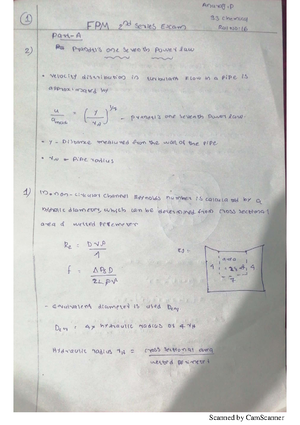 Anurag.P
S3 Chemical
Roll no: 16
①
FPM 2nd series Exam
Part-A
2) Prandtl's one seventh Power law
• Velocity distribution in turbulent flow in a pipe is
approximated by
u/umax = (y/r₀)^1/7 - prandtl's one seventh power law
• y - Distance measured from the wall of the pipe
• r₀ → pipe radius
1) In non-circular channel Reynolds number is calculated by a
hydraulic diameter, which can be determined from cross sectional
area & wetted perimeter
Re = DVρ
f = ΔP D / 2LρV²
• equivalent diameter is used Deq
Deq = 4x hydraulic radius or 4 rH
Hydraulic radius rH = cross sectional area / wetted perimeter
Scanned by CamScanner